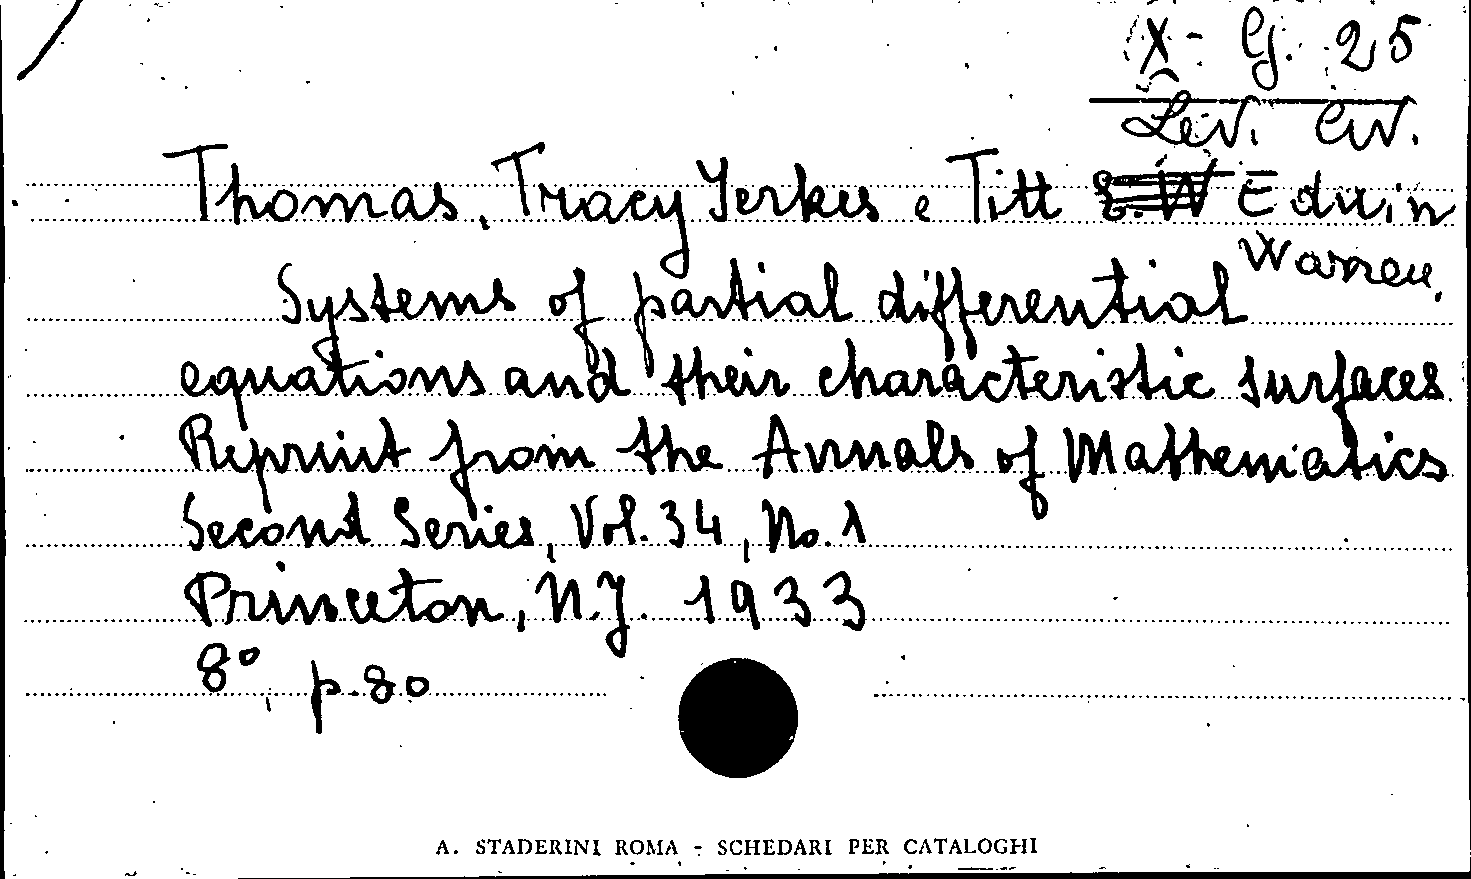 X - G. 25
Lev. Civ.
Thomas, Tracy Yerkes e Titt Eduin
Warren,
Systems of partial differential
equations and their characteristic surfaces
Reprint from the Annals of Mathematics
Second Series, Vol. 34, No. 1
Princeton, N.J. 1933
8°, p. 80
A. STADERINI ROMA - SCHEDARI PER CATALOGHI